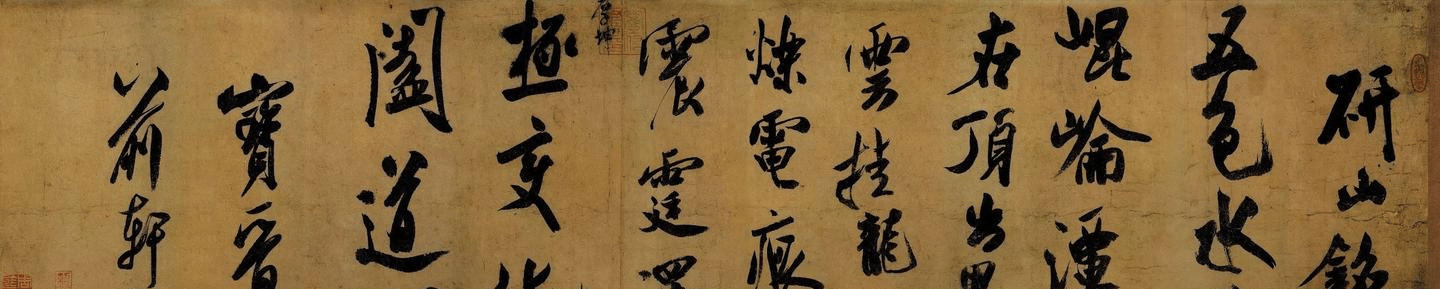 研山銘
五色水
崐崘潭
在頂出
雲挂龍
爍電痕
震霆
厚坤
極變
闔道
寶晉
前軒